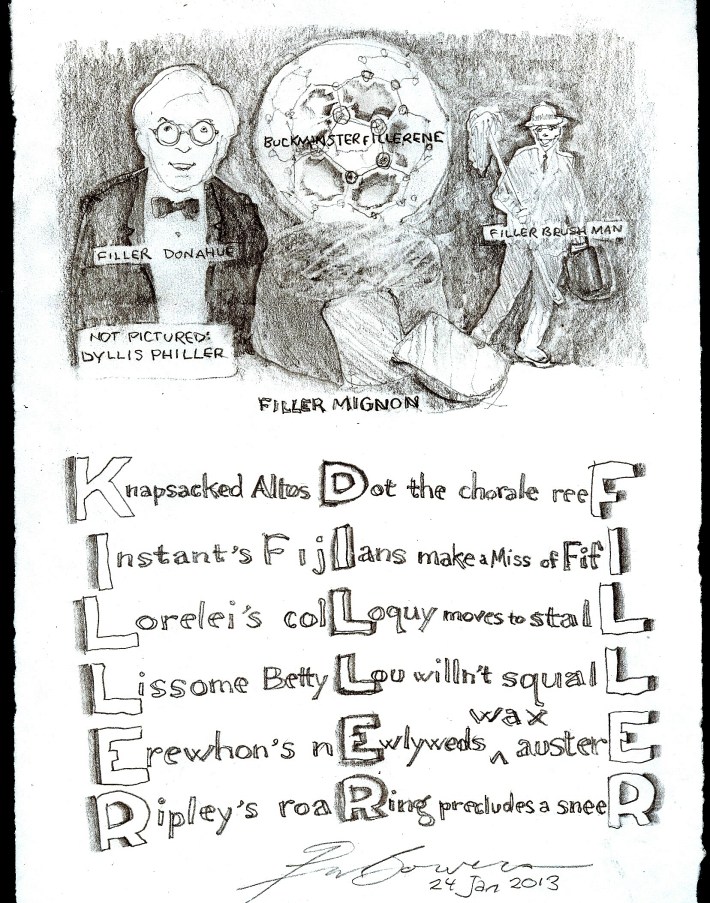 BUCKMINSTERFILLERENE
FILLER BRUSH MAN
FILLER DONAHUE
NOT PICTURED:
DYLLIS PHILLER
FILLER MIGNON
Knapsacked Altos Dot the chorale reeF
Instant's FijIans make a Miss of FifI
Lorelei's colLoquy moves to stalL
Lissome Betty Lou willn't squalL
Erewhon's nEwlyweds ^ wax austerE
Ripley's roaRing precludes a sneeR
24 Jan 2013